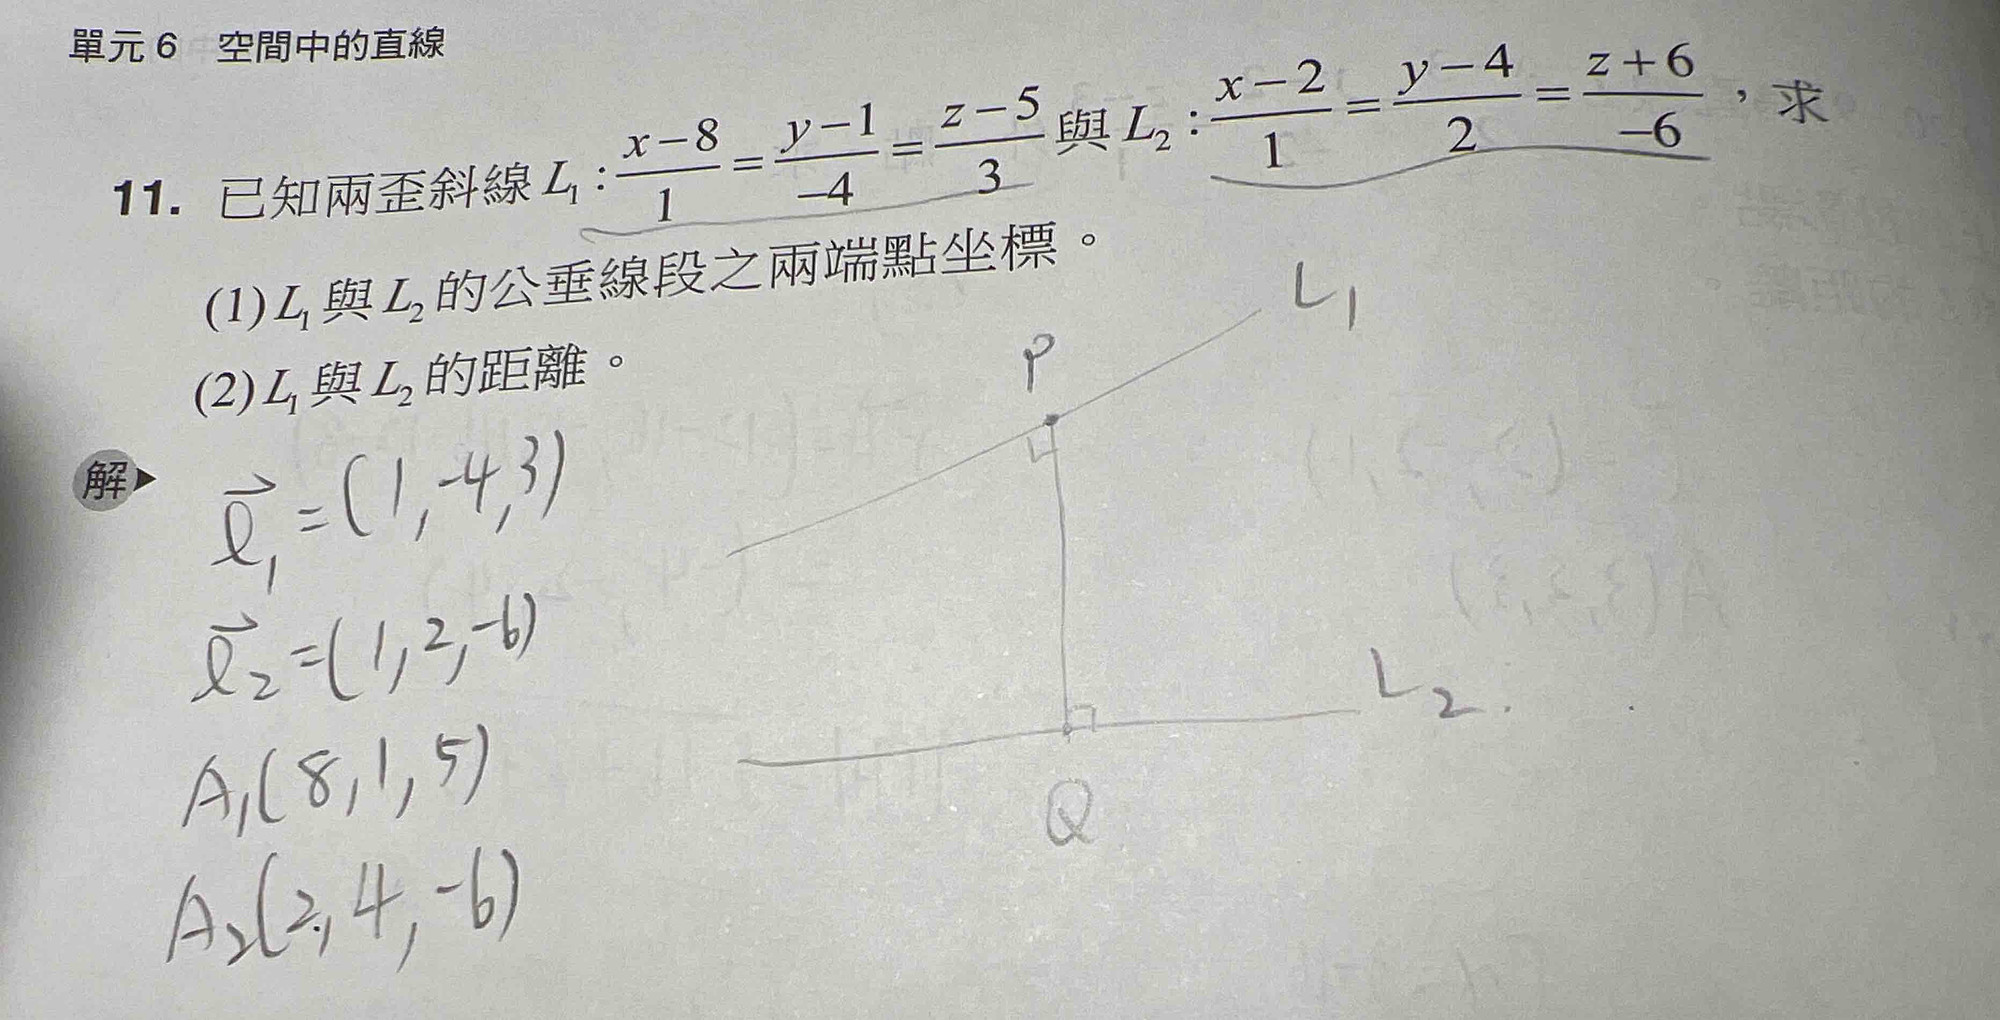 單元 6 空間中的直線
11. 已知兩歪斜線 L₁ : (x-8)/1 = (y-1)/-4 = (z-5)/3 與 L₂ : (x-2)/1 = (y-4)/2 = (z+6)/-6，求
(1) L₁ 與 L₂ 的公垂線段之兩端點坐標。
(2) L₁ 與 L₂ 的距離。
解
ℓ⃗₁ = (1, -4, 3)
ℓ⃗₂ = (1, 2, -6)
A₁(8, 1, 5)
A₂(2, 4, -6)
L₁
P
L₂
Q